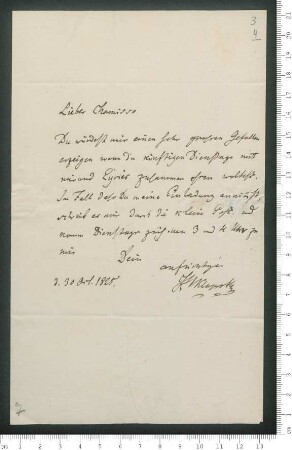 3
4
Lieber Chamisso
Du würdest mir einen sehr großen Gefallen
erzeigen wenn Du künftigen Dienstag mit
mir und Eyriès zusammen essen wolltest.
Im Fall daß Du meine Einladung annimst,
schreib es mir durch die kleine Post, und
komm Dienstags zwischen 3 und 4 Uhr zu
mir
Dein
aufrichtiger
d. 30 Oct. 1825.
Klaproth